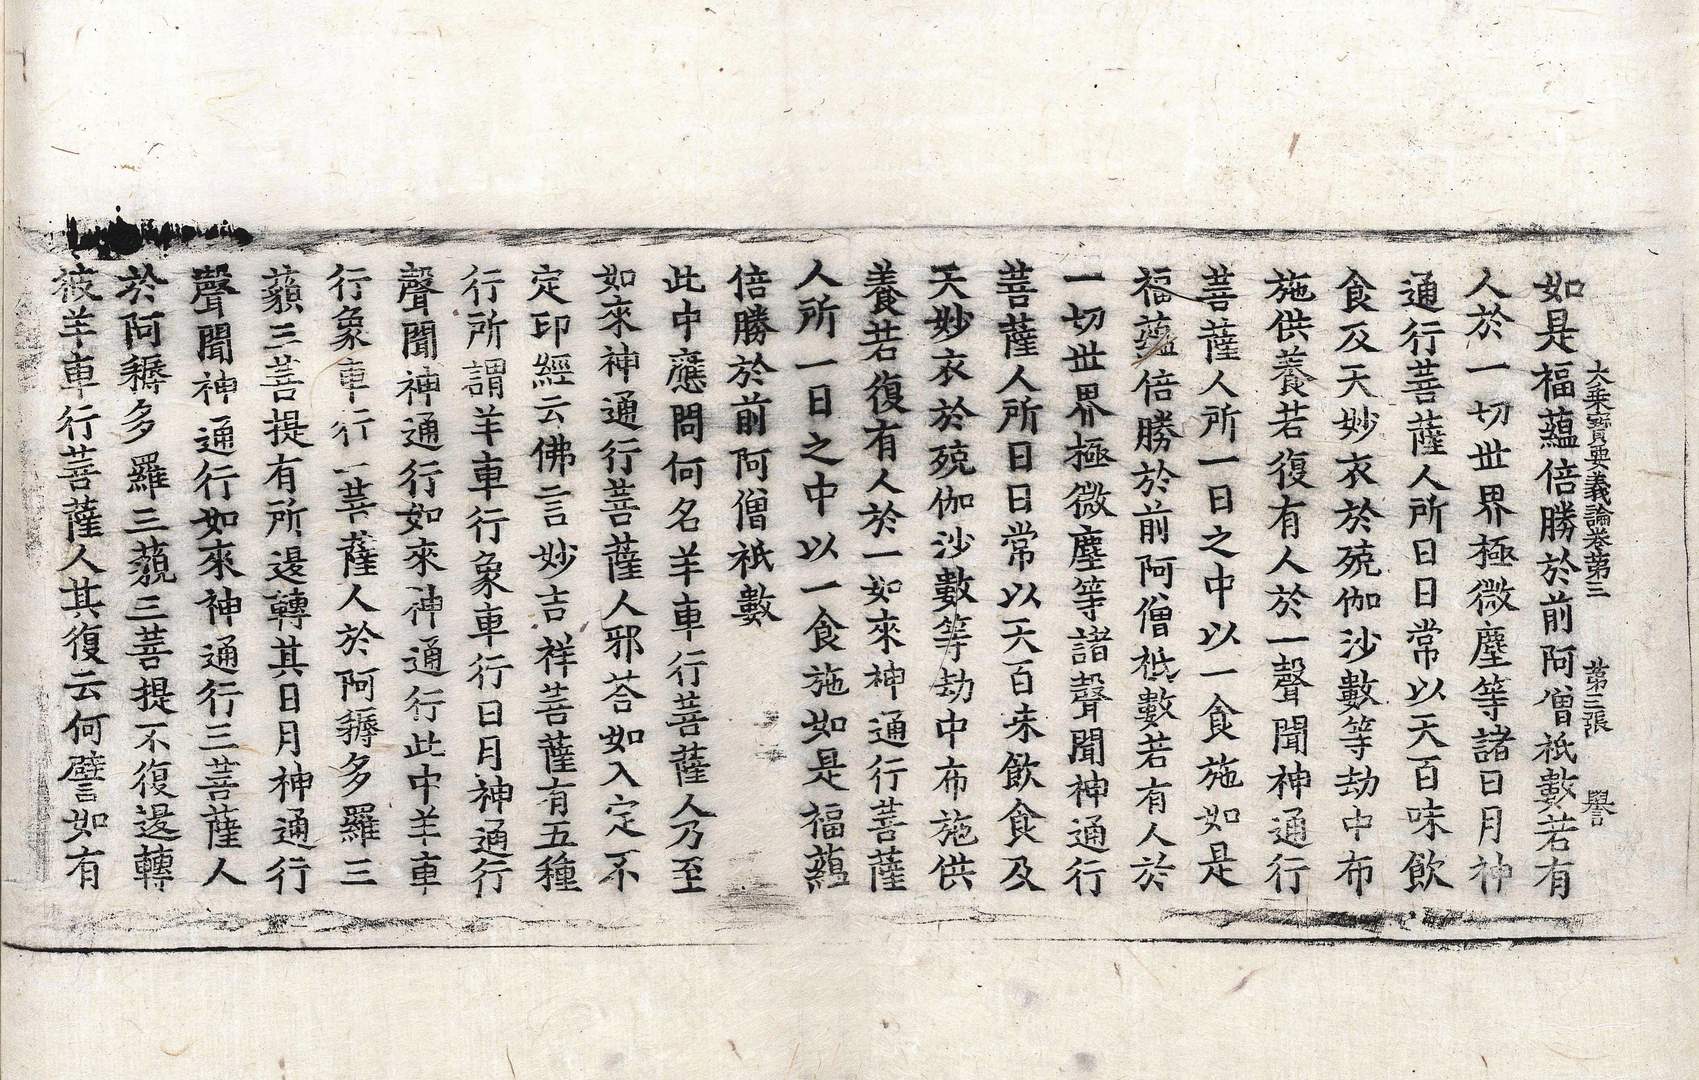 大乗寳要義論卷第三 第三張 譽
如是福藴倍勝於前阿僧祇數若有
人於一切世界極微塵等諸日月神
通行菩薩人所日日常以天百味飲
食及天妙衣於殑伽沙數等劫中布
施供養若復有人於一聲聞神通行
菩薩人所一日之中以一食施如是
福藴倍勝於前阿僧祇數若有人於
一切世界極微塵等諸聲聞神通行
菩薩人所日日常以天百味飲食及
天妙衣於殑伽沙數等劫中布施供
養若復有人於一如來神通行菩薩
人所一日之中以一食施如是福藴
倍勝於前阿僧祇數
此中應問何名羊車行菩薩人乃至
如來神通行菩薩人邪荅如入定不
定印經云佛言妙吉祥菩薩有五種
行所謂羊車行象車行日月神通行
聲聞神通行如來神通行此中羊車
行象車行二菩薩人於阿耨多羅三
藐三菩提有所退轉其日月神通行
聲聞神通行如來神通行三菩薩人
於阿耨多羅三藐三菩提不復退轉
彼羊車行菩薩人其復云何譬如有